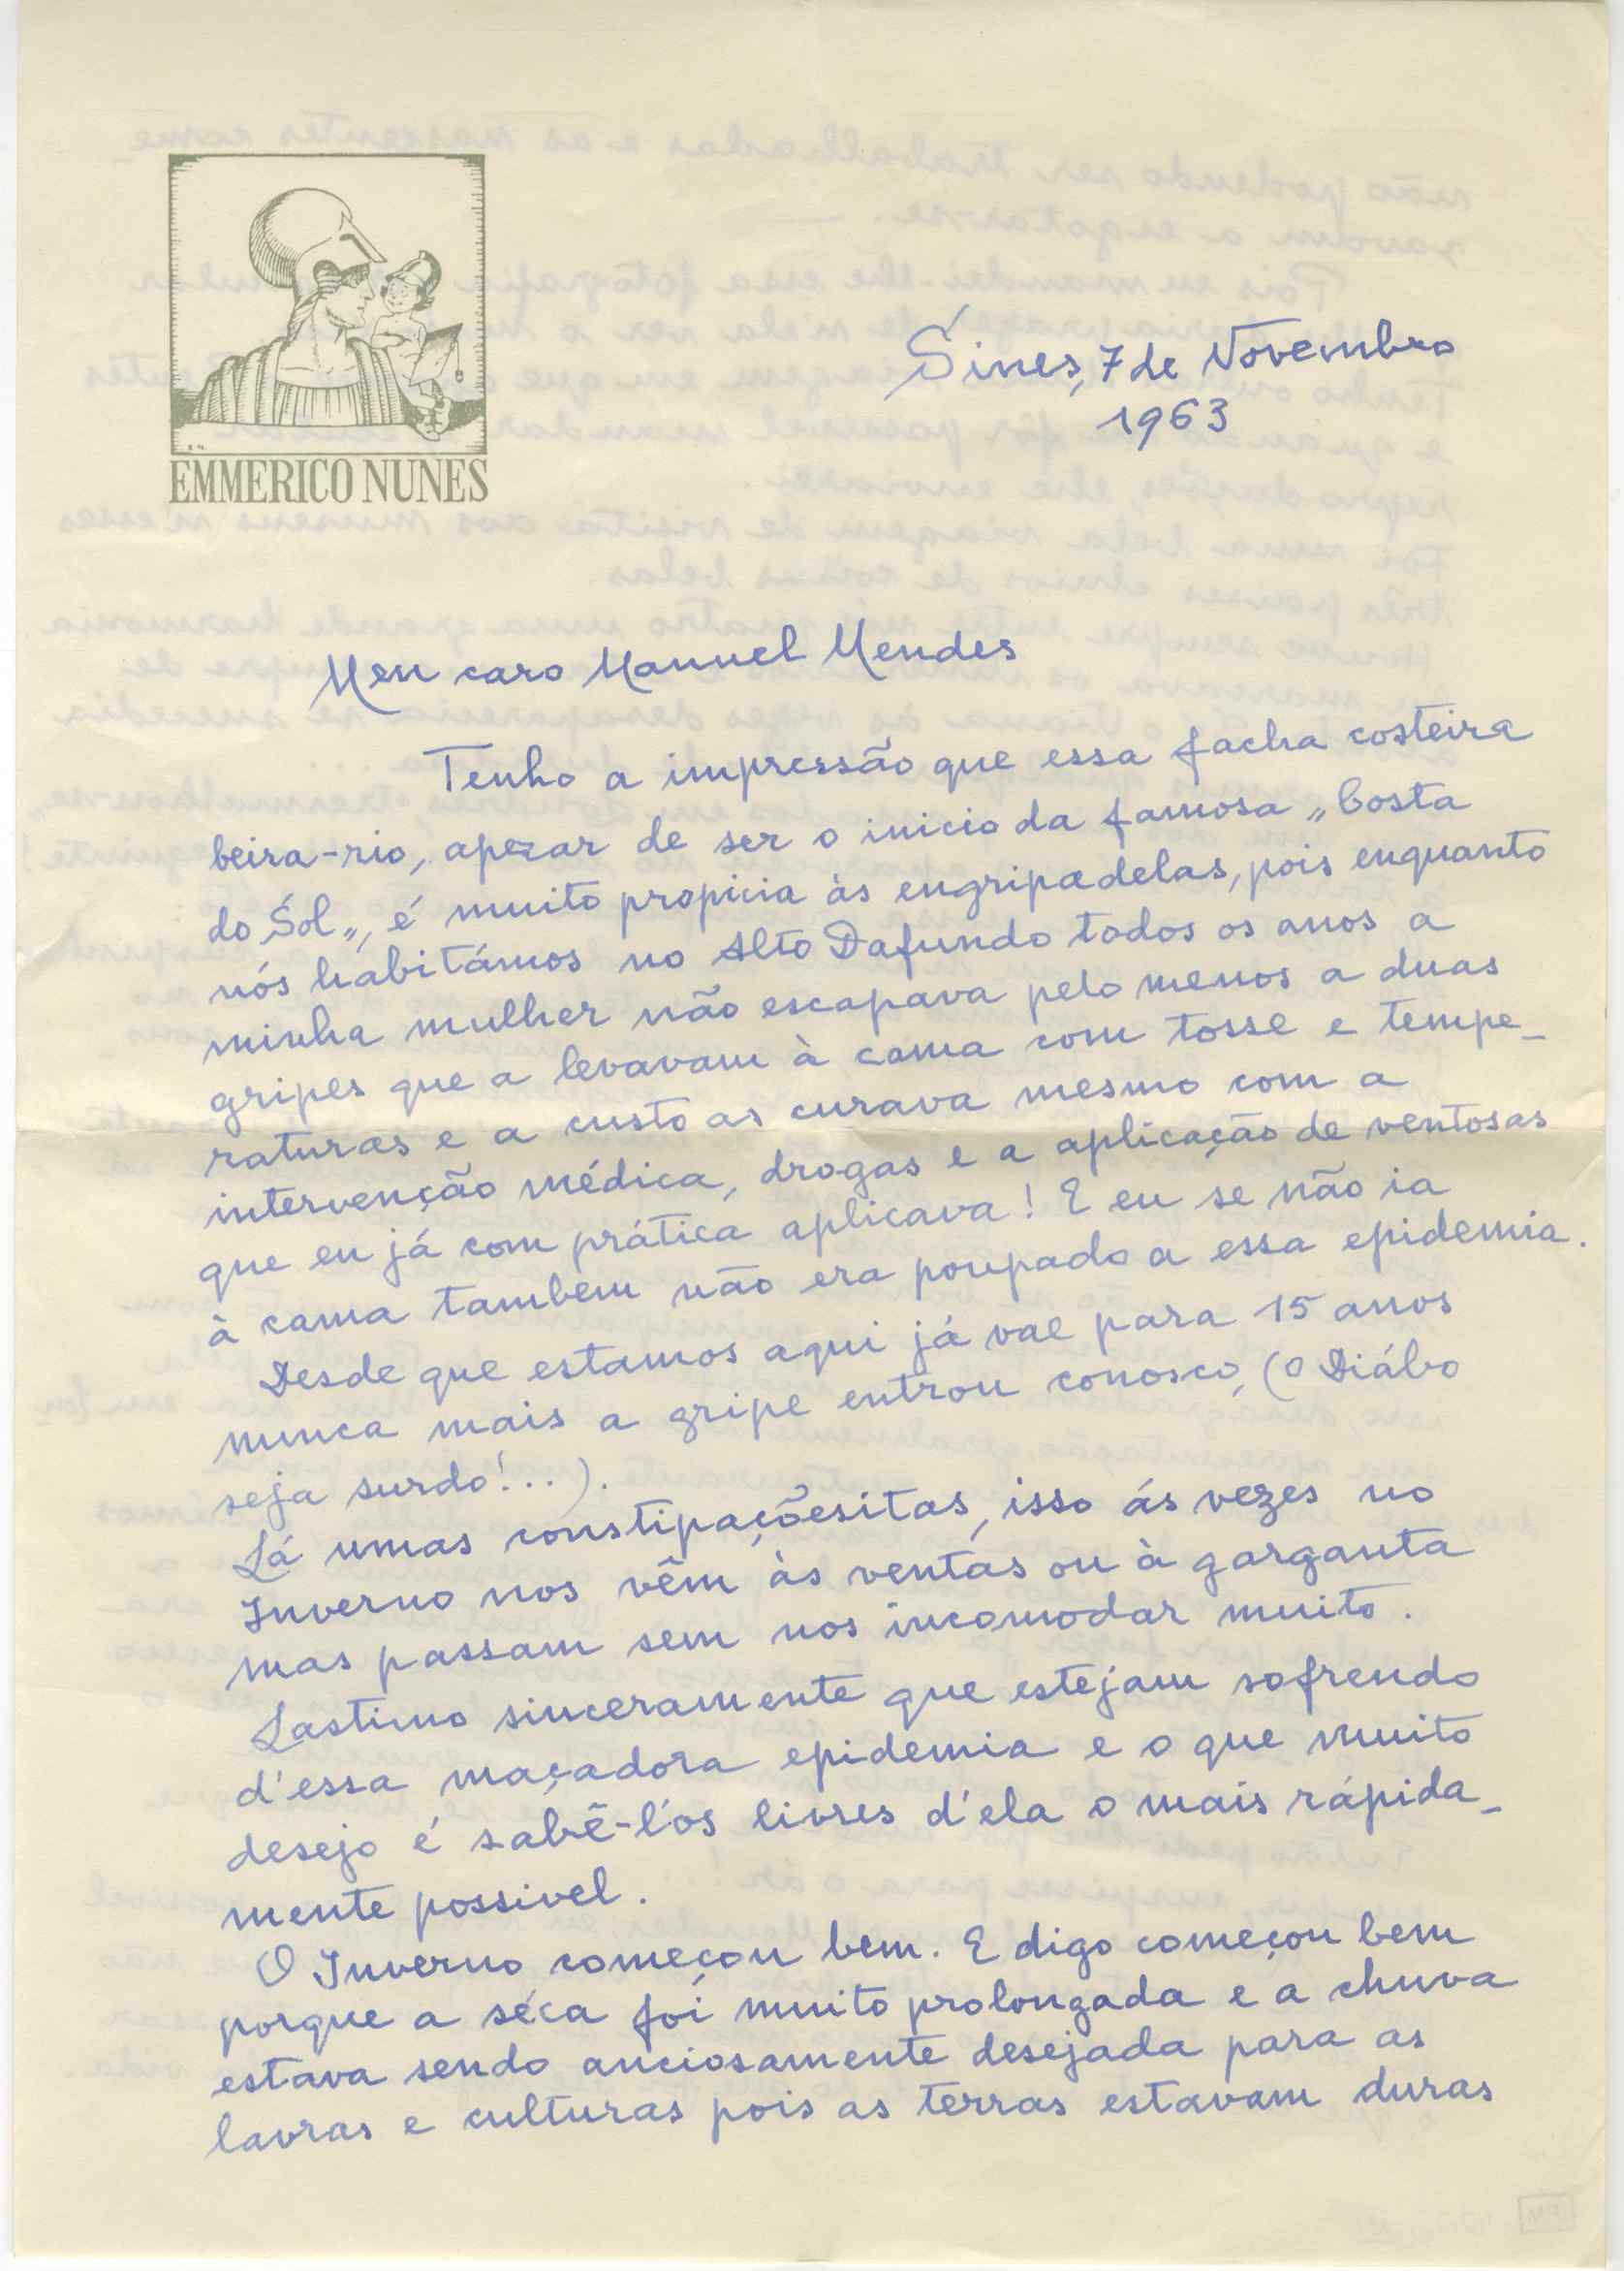 EMMERICO NUNES
Sines, 7 de Novembro
1963
Meu caro Manuel Mendes
Tenho a impressão que essa facha costeira
beira-rio, apezar de ser o inicio da famosa „Costa
do Sol„, é muito propicia às engripadelas, pois enquanto
nós habitámos no Alto Dafundo todos os anos a
minha mulher não escapava pelo menos a duas
gripes que a levavam à cama com tosse e tempe-
raturas e a custo as curava mesmo com a
intervenção médica, drogas e a aplicação de ventosas
que eu já com prática aplicava! E eu se não ia
à cama tambem não era poupado a essa epidemia.
Desde que estamos aqui já vae para 15 anos
nunca mais a gripe entrou conosco, (o Diábo
seja surdo!...).
Lá umas constipaçõesitas, isso ás vezes no
Inverno nos vêm às ventas ou à garganta
mas passam sem nos incomodar muito.
Lastimo sinceramente que estejam sofrendo
d'essa maçadora epidemia e o que muito
desejo é sabê-l'os livres d'ela o mais rápida-
mente possivel.
O Inverno começou bem. E digo começou bem
porque a séca foi muito prolongada e a chuva
estava sendo anciosamente desejada para as
lavras e culturas pois as terras estavam duras